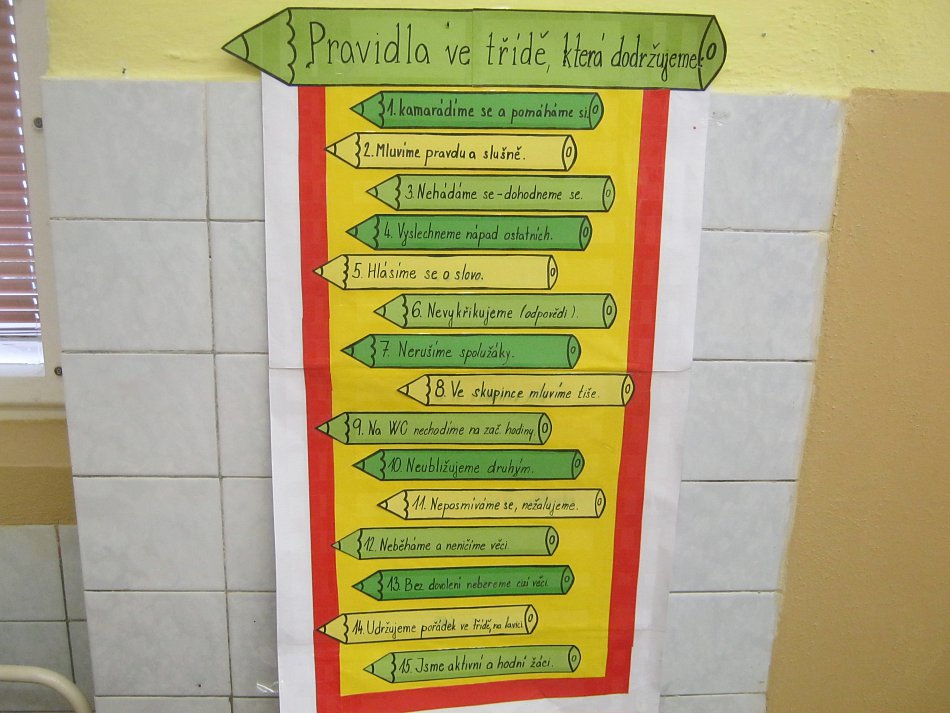 Pravidla ve třídě, která dodržujeme:
1. kamarádíme se a pomáháme si.
2. Mluvíme pravdu a slušně.
3. Nehádáme se - dohodneme se.
4. Vyslechneme nápad ostatních.
5. Hlásíme se o slovo.
6. Nevykřikujeme (odpovědi).
7. Nerušíme spolužáky.
8. Ve skupince mluvíme tiše.
9. Na WC nechodíme na zač. hodiny.
10. Neubližujeme druhým.
11. Neposmíváme se, nežalujeme.
12. Neběháme a neničíme věci.
13. Bez dovolení nebereme cizí věci.
14. Udržujeme pořádek ve třídě, na lavici.
15. Jsme aktivní a hodní žáci.